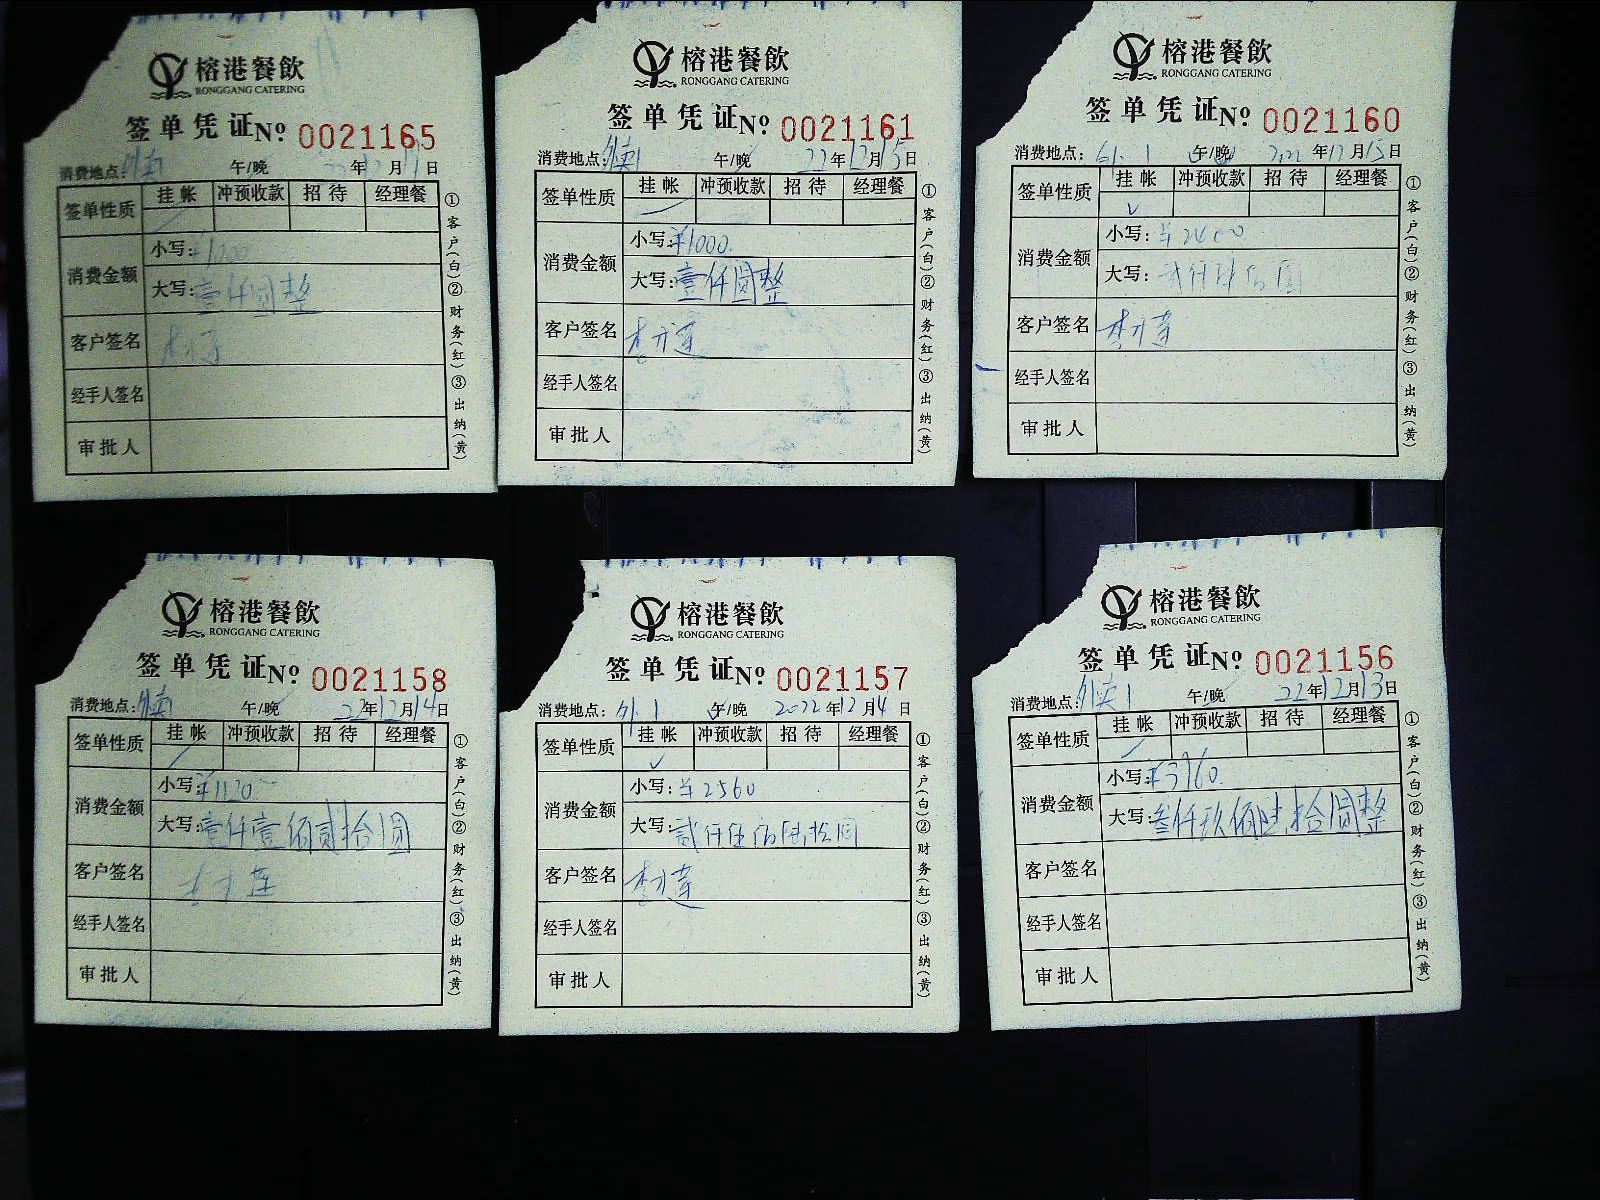 榕港餐飲
RONGGANG CATERING
签单凭证№ 0021165
消费地点：外卖1 午/晚 年 月 日
签单性质 挂帐 冲预收款 招待 经理餐
消费金额
小写：
大写：壹仟圆整
客户签名
经手人签名
审批人
①客户（白）②财务（红）③出纳（黄）
榕港餐飲
RONGGANG CATERING
签单凭证№ 0021161
消费地点：外卖1 午/晚 22年12月15日
签单性质 挂帐 冲预收款 招待 经理餐
消费金额
小写：¥1000.
大写：壹仟圆整
客户签名
经手人签名
审批人
①客户（白）②财务（红）③出纳（黄）
榕港餐飲
RONGGANG CATERING
签单凭证№ 0021160
消费地点：外.1 午/晚 2022年12月15日
签单性质 挂帐 冲预收款 招待 经理餐
消费金额
小写：¥2400
大写：贰仟肆佰圆
客户签名
经手人签名
审批人
①客户（白）②财务（红）③出纳（黄）
榕港餐飲
RONGGANG CATERING
签单凭证№ 0021158
消费地点：外卖1 午/晚 22年12月14日
签单性质 挂帐 冲预收款 招待 经理餐
消费金额
小写：¥1120
大写：壹仟壹佰贰拾圆
客户签名
经手人签名
审批人
①客户（白）②财务（红）③出纳（黄）
榕港餐飲
RONGGANG CATERING
签单凭证№ 0021157
消费地点：外.1 午/晚 2022年12月14日
签单性质 挂帐 冲预收款 招待 经理餐
消费金额
小写：¥2560
大写：贰仟伍佰陆拾圆
客户签名
经手人签名
审批人
①客户（白）②财务（红）③出纳（黄）
榕港餐飲
RONGGANG CATERING
签单凭证№ 0021156
消费地点：外卖1 午/晚 22年12月13日
签单性质 挂帐 冲预收款 招待 经理餐
消费金额
小写：¥3960.
大写：叁仟玖佰陆拾圆整
客户签名
经手人签名
审批人
①客户（白）②财务（红）③出纳（黄）